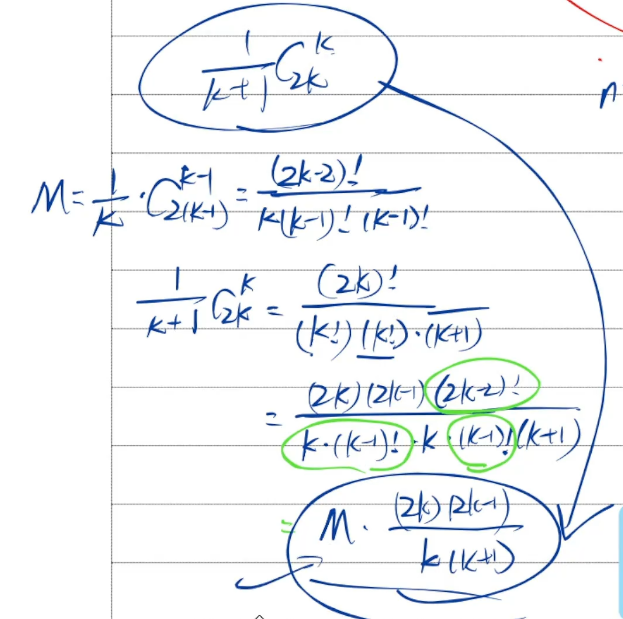 \frac{1}{k+1} C_{2k}^{k}
n
M = \frac{1}{k} \cdot C_{2(k-1)}^{k-1} = \frac{(2k-2)!}{k(k-1)!(k-1)!}
\frac{1}{k+1} C_{2k}^{k} = \frac{(2k)!}{(k!)(k!) \cdot (k+1)}
= \frac{(2k)(2k-1)(2k-2)!}{k \cdot (k-1)! \cdot k \cdot (k-1)!(k+1)}
= M \cdot \frac{(2k)(2k-1)}{k(k+1)}